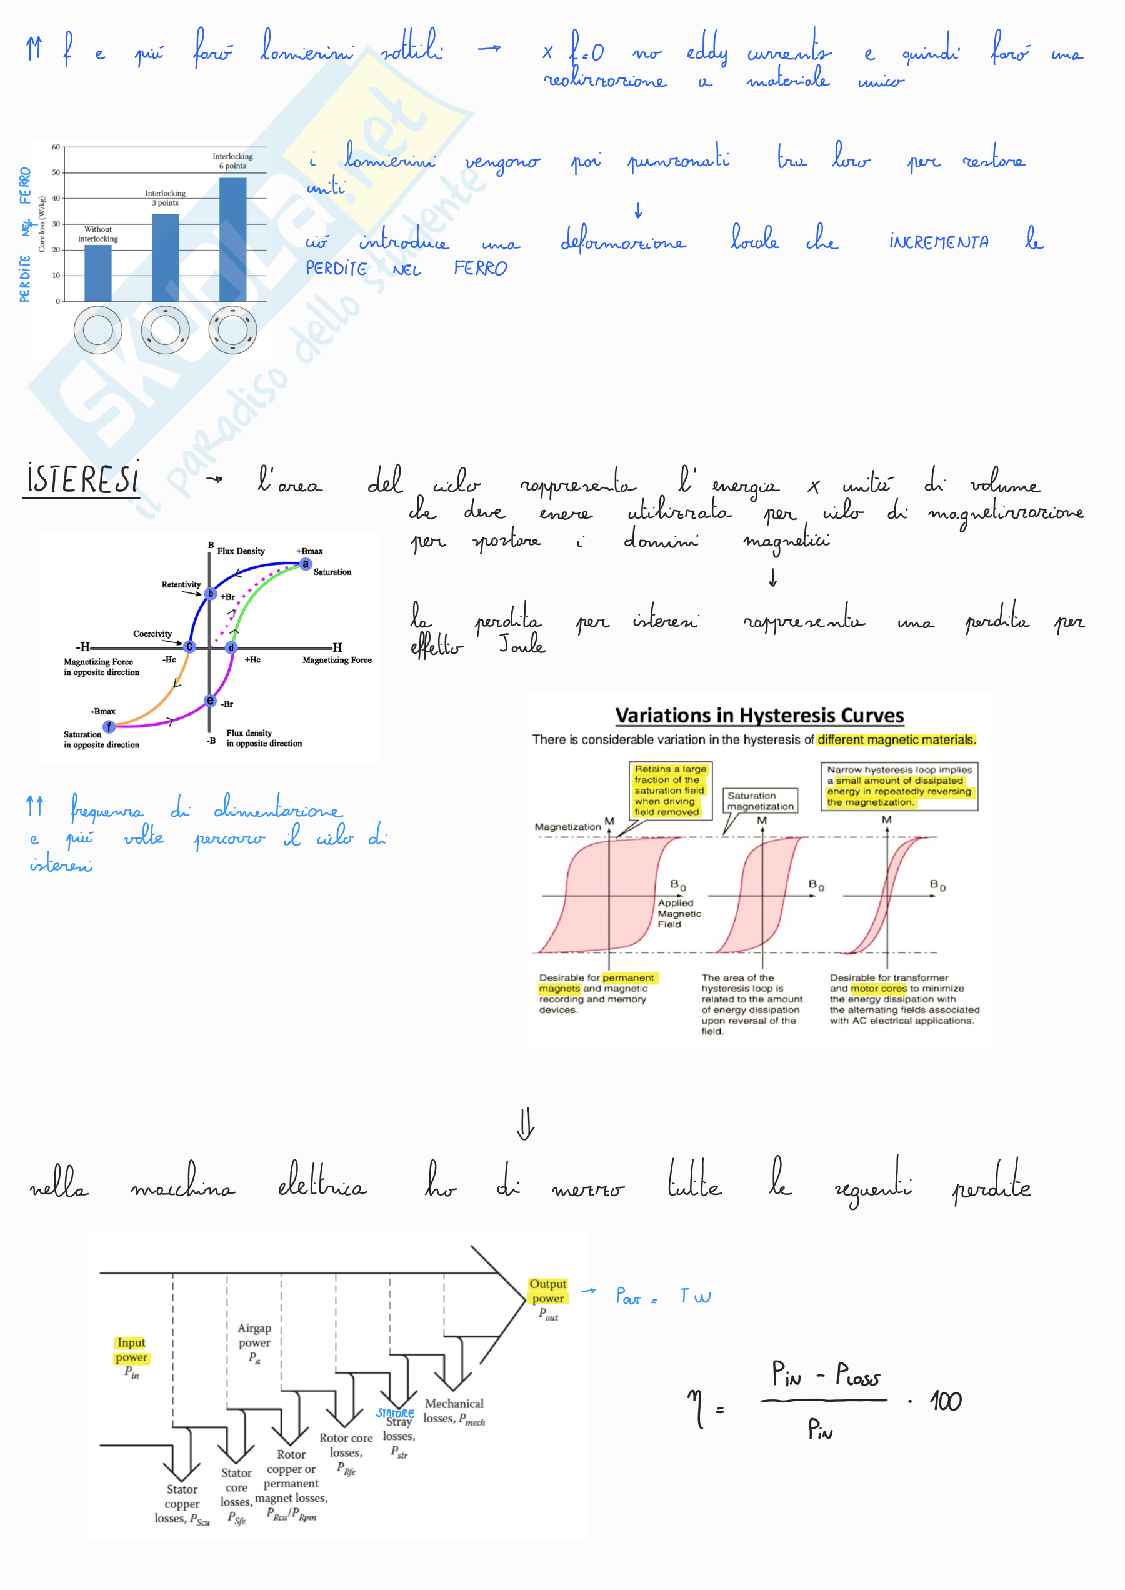 ↑↑ f e più farò lamierini sottili → x f=0 no eddy currents e quindi farò una
realizzazione a materiale unico
PERDITE NEL FERRO
Core loss (W/kg)
60
50
40
30
20
10
0
Without
interlocking
Interlocking
3 points
Interlocking
6 points
i lamierini vengono poi punzonati tra loro per restare
uniti
↓
ciò introduce una deformazione locale che INCREMENTA le
PERDITE NEL FERRO
SKUOLA.net
il paradiso dello studente
ISTERESI → l'area del ciclo rappresenta l'energia x unità di volume
che deve essere utilizzata per ciclo di magnetizzazione
per spostare i domini magnetici
↓
la perdita per isteresi rappresenta una perdita per
effetto Joule
B
Flux Density
+Bmax
a
Saturation
Retentivity
b
+Br
Coercivity
-H
c
d
H
Magnetizing Force
in opposite direction
-Hc
+Hc
Magnetizing Force
e
-Br
-Bmax
f
Saturation
in opposite direction
-B
Flux density
in opposite direction
↑↑ frequenza di alimentazione
e più volte percorro il ciclo di
isteresi
Variations in Hysteresis Curves
There is considerable variation in the hysteresis of different magnetic materials.
Retains a large
fraction of the
saturation field
when driving
field removed
Saturation
magnetization
Narrow hysteresis loop implies
a small amount of dissipated
energy in repeatedly reversing
the magnetization.
Magnetization
M
M
M
B0
B0
B0
Applied
Magnetic
Field
Desirable for permanent
magnets and magnetic
recording and memory
devices.
The area of the
hysteresis loop is
related to the amount
of energy dissipation
upon reversal of the
field.
Desirable for transformer
and motor cores to minimize
the energy dissipation with
the alternating fields associated
with AC electrical applications.
⇓
nella macchina elettrica ho di mezzo tutte le seguenti perdite
Input
power
Pin
Airgap
power
Pa
Output
power
Pout
→ Pout = T ω
Stator
copper
losses, PScu
Stator
core
losses,
PSfe
Rotor
copper or
permanent
magnet losses,
PRcu/PRpm
Rotor core
losses,
PRfe
STATORE
Stray
losses,
Pstr
Mechanical
losses, Pmech
η = (PIN - PLOSS) / PIN · 100